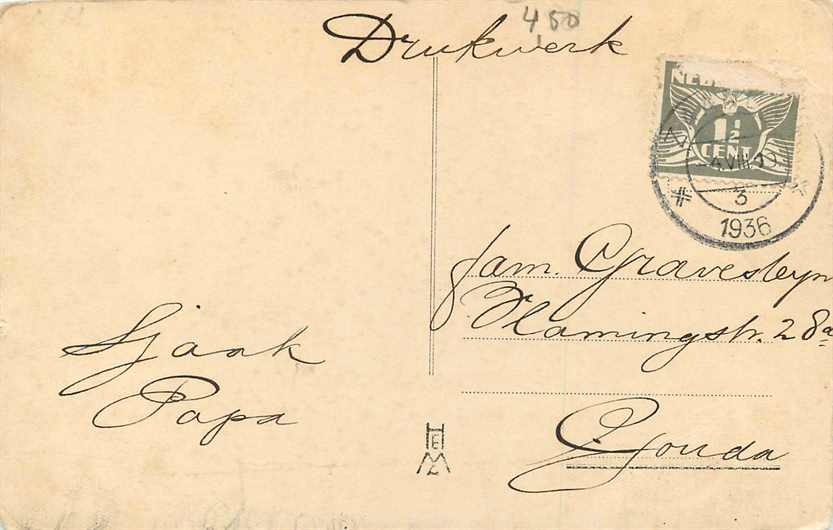 450
Drukwerk
NED
1½
CENT
4 VIII 10
3
1936
fam. Gravesteyn
Vlamingstr. 28a
Gouda
Sjaak
Papa
HEMA